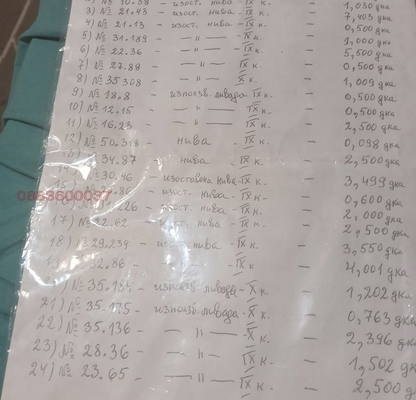 2) № 10.38 - изост. нива - IX к. - 1,030 дка
3) № 21.43 - изост. нива - IX к. - 7,403 дка
4) № 21.13 - изост. нива - IX к. - 0,500 дка
5) № 31.189 - " - IX к. - 1,000 дка
6) № 22.36 - " - IX к. - 5,500 дка
7) № 27.88 - " - IX к. - 0,500 дка
8) № 35308 - " - X к. - 1,009 дка
9) № 18.8 - използв. ливада - IX к. - 0,500 дка
10) № 12.15 - " - IX к. - 0,500 дка
11) № 16.23 - " - IX к. - 2,500 дка
12) № 50.318 - нива - IX к. - 0,098 дка
34.87 - нива - IX к. - 2,500 дка
30.46 - изоставена нива - IX к. - 3,499 дка
.86 - изост. нива - IX к. - 0,600 дка
0863600037
.26 - изост. нива - IX к. - 2,000 дка
17) № 22.62 - изост. нива - IX к. - 2,500 дка
18) № 29.239 - изост. нива - IX к. - 3,550 дка
32.86 - IX к. - 4,001 дка
№ 35.184 - използв. ливада - X к. - 1,202 дка
21) № 35.175 - използв. ливада - X к. - 0,763 дка
22) № 35.136 - " - X к. - 2,396 дка
23) № 28.36 - " - IX к. - 1,502 дка
24) № 23.65 - " - IX к. - 2,500 дка